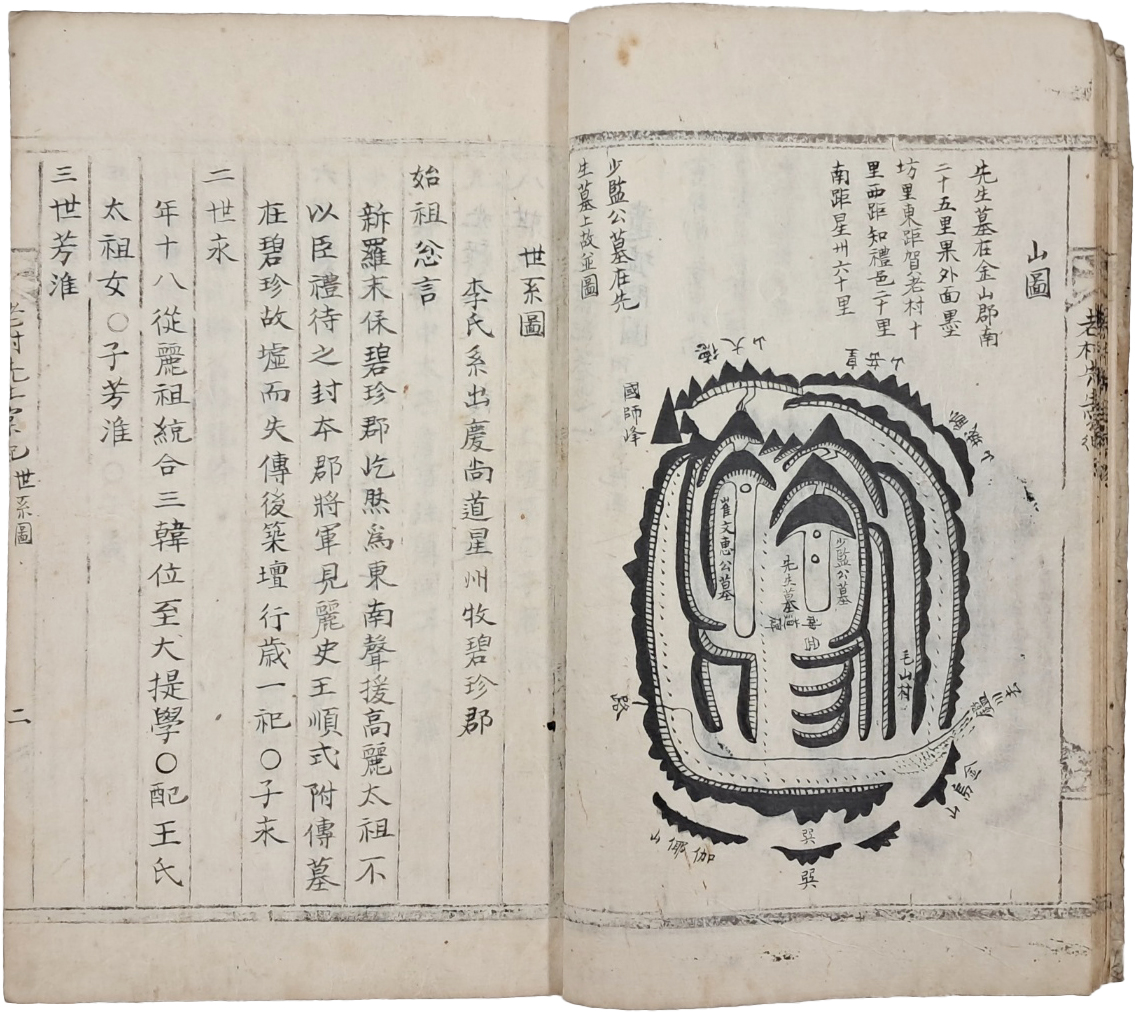 山圖
先生墓在金山郡南
二十五里果外面墨
坊里東距賀老村十
里西距知禮邑二十里
南距星州六十里
少監公墓在先
生墓上故並圖
德大山
國師峰
崔文惠公墓
少監公墓
先生墓
毛山村
路
金烏山
伽倻山
巽
巽
世系圖
李氏系出慶尚道星州牧碧珍郡
始祖忩言
新羅末保碧珍郡屹然為東南聲援高麗太祖不
以臣禮待之封本郡將軍見麗史王順式附傳墓
在碧珍故墟而失傳後築壇行歲一祀○子永
二世永
年十八從麗祖統合三韓位至大提學○配王氏
太祖女○子芳淮
三世芳淮
世系圖
二